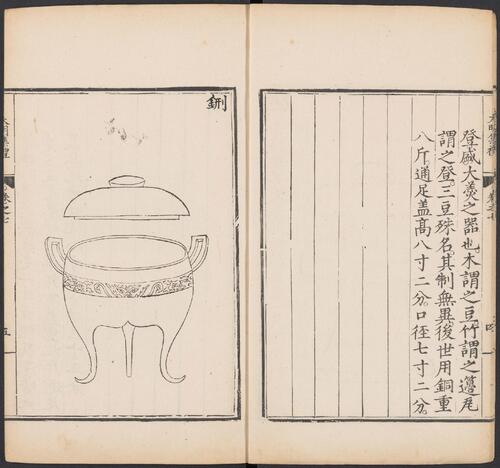 登盛大羹之器也。木謂之豆。竹謂之籩。瓦
謂之登。三豆殊名。其制無異。後世用銅重
八斤。通足盖髙八寸二分。口徑七寸二分。
鉶
大明集禮
卷之七
五